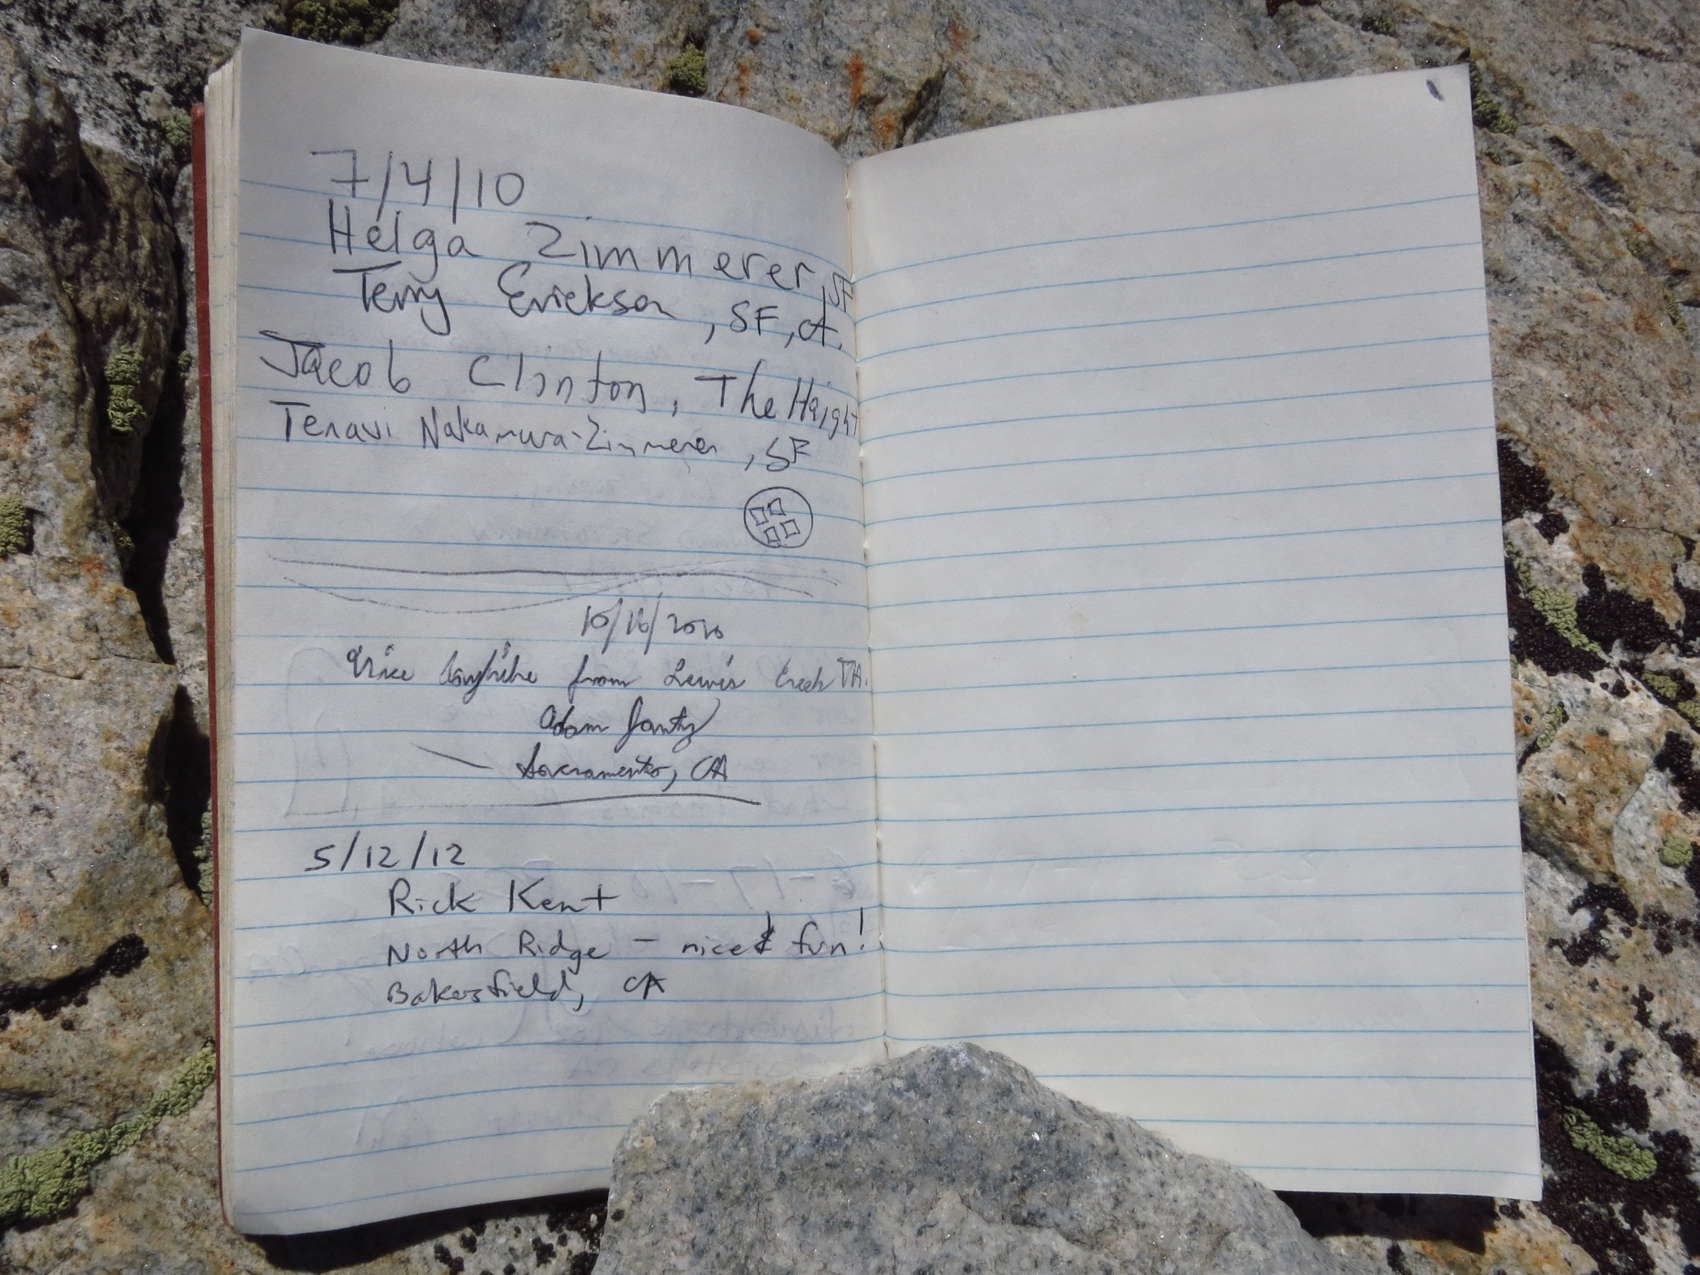 7/4/10
Helga Zimmerer, SF
Terry Erickson, SF, CA.
Jacob Clinton, The Haight
Tenavi Nakamura-Zimmerer, SF
10/16/2010
Nice dayhike from Lewis Creek TH.
Adam Jantz
Sacramento, CA
5/12/12
Rick Kent
North Ridge – nice & fun!
Bakersfield, CA